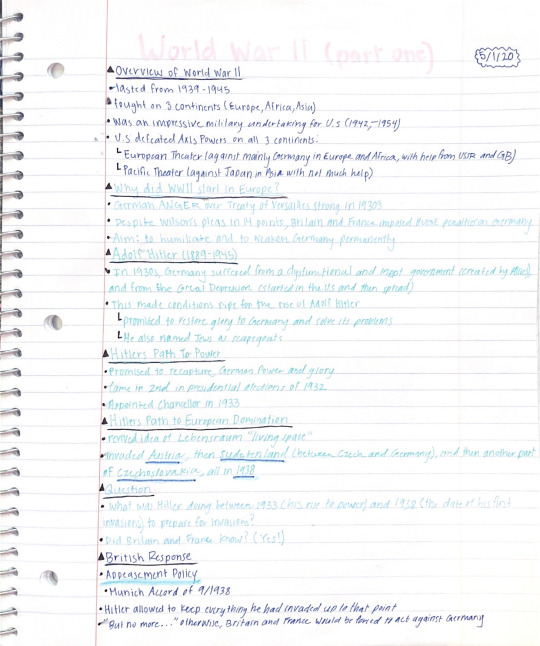 World War II (part one)
5/1/20
▲Overview of World War II
•lasted from 1939-1945
•fought on 3 continents (Europe, Africa, Asia)
•Was an impressive military undertaking for U.S (1942-1954)
•U.S defeated Axis Powers on all 3 continents:
└European Theater (against mainly Germany in Europe and Africa, with help from USSR and GB)
└Pacific Theater (against Japan in Asia with not much help)
▲Why did WWII start in Europe?
•German ANGER over Treaty of Versailles strong in 1930s
•Despite Wilson's pleas in 14 points, Britain and France imposed penalties on Germany
•Aim: to humiliate and to weaken Germany permanently
▲Adolf Hitler (1889-1945)
•In 1930s, Germany suffered from a dysfunctional and inept government (created by Allies),
and from the Great Depression (started in the US and then spread)
•This made conditions ripe for the rise of Adolf Hitler
└promised to restore glory to Germany and solve its problems
└He also named Jews as scapegoats
▲Hitlers Path To Power
•Promised to recapture German Power and glory
•Came in 2nd in presidential elections of 1932
•Appointed Chancellor in 1933
▲Hitlers Path to European Domination
•revived idea of Lebensraum "living space"
•Invaded Austria, then Sudetenland (between Czech and Germany), and then another part
of Czechoslovakia, all in 1938
▲Question
•What was Hitler doing between 1933 (his rise to power) and 1938 (the date of his first
invasions) to prepare for invasions?
•Did Britain and France know? (Yes!)
▲British Response
•Appeasement Policy
•Munich Accord of 9/1938
•Hitler allowed to keep everything he had invaded up to that point
•"But no more..." otherwise, Britain and France would be forced to act against Germany